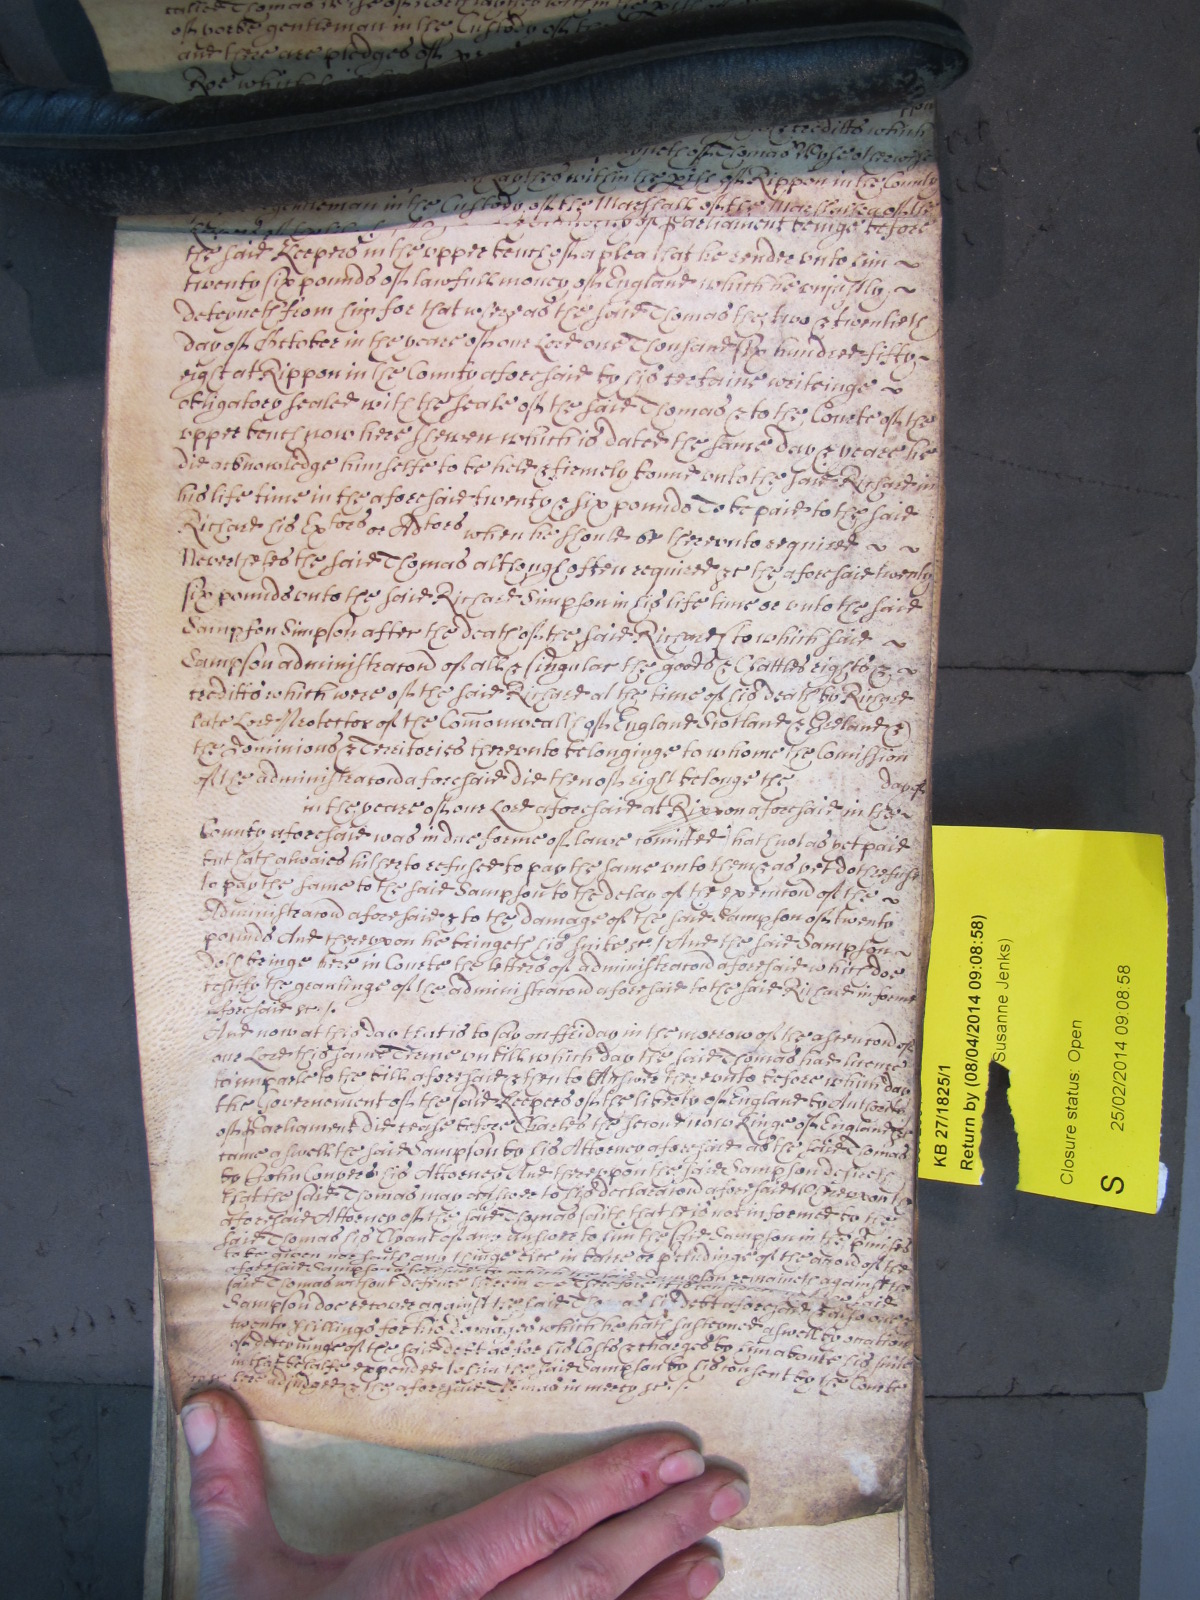 of yorke gentleman in the Custody of the
and there are pledges of
Roe which
creditts which
Thomas Wyse otherwise
within the p'ish of Rippon in the County
gentleman in the Custody of the Marshall of the Marshalsea of the
of Parliament beinge before
the said Keepers in the vpper bench of a plea that he render vnto him
twenty six pounds of lawfull money of England which he vniustly
deteyneth from him for that whereas the said Thomas the two & twentieth
day of October in the yeare of our Lord one Thousand six hundred fifty
eight at Rippon in the County aforesaid by his certaine writeinge
obligatory sealed with the seale of the said Thomas & to the Courte of the
vpper bench now here shewen which is dated the same day & yeare he
did acknowledge himselfe to be held & firmely bound vnto the said Richard in
his life time in the aforesaid twenty & six pounds To be paid to the said
Richard his Extors or Adtors when he should be therevnto required
Neverthelesse the said Thomas although often required &c the aforesaid twenty
six pounds vnto the said Richard Simpson in his life time or vnto the said
Sampson Simpson after the death of the said Richard (to which said
Sampson administracon of all & singular the goods & Chattles rights &
creditts which were of the said Richard at the time of his death by Richard
late Lord Protector of the Comonwealth of England Scotland & Ireland &
the dominions & Territories therevnto belonginge to whome the Comission
of the administracon aforesaid did then of right belonge the day of
in the yeare of our Lord aforesaid at Rippon aforesaid in the
County aforesaid was in due forme of lawe comitted) hath not as yet paid
but hath alwaies hitherto refused to pay the same vnto them & as yet doth refuse
to pay the same to the said Sampson to the delay of the execucon of the
Administracon aforesaid & to the damage of the said Sampson of twenty
pounds And therevpon he bringeth his suite &c And the said Sampson
doth bringe here in Courte the letters of administracon aforesaid which doe
testify the grantinge of the administracon aforesaid to the said Richard in forme
aforesaid &c
And now at this day that is to say on ffriday in the morrow of the ascencon of
our Lord this same Terme vntill which day the said Thomas had licence
to imparle to the bill aforesaid & then to Answere therevnto before which day
the Governement of the said Keepers of the liberty of England by Authority
of Parliament did cease before Charles the second now Kinge of England &c
came aswell the said Sampson by his Attorney aforesaid as the said Thomas
by John Conyers his Attorney And therevpon the said Sampson desireth
that the said Thomas may answere to his declaracon aforesaid Wherevpon the
aforesaid Attorney of the said Thomas saith that he is not informed by the
said Thomas his Clyant of any answere to him the said Sampson in the p'mises
to be given nor saith any thinge else in barre or p'cludinge of the accon of the
aforesaid Sampson remaineth against the
said Thomas without defence therein &c Therefore the said
Sampson doe recover against the said Thomas his debt aforesaid & also
twenty shillings for his damages which he hath susteyned aswell by occation
of deteyninge of the said debt as for his Costs & charges by him aboute his suite
in that behalfe expended to him the said Sampson by his consent by the Courte
here adiudged & the aforesaid Thomas in mercy &c
KB 27/1825/1
Return by (08/04/2014 09:08:58)
Susanne Jenks)
Closure status: Open
S
25/02/2014 09:08:58